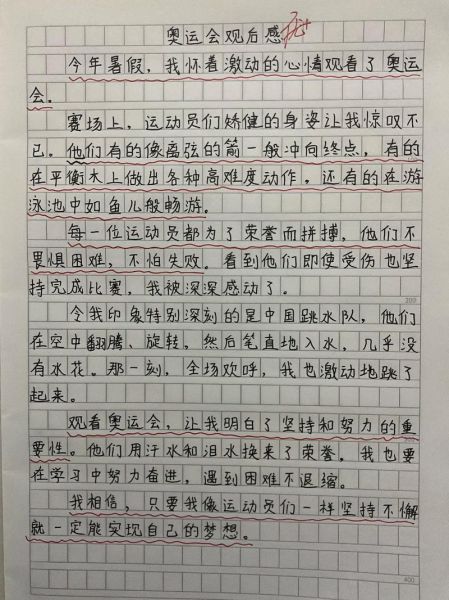 奥运会观后感 优+
今年暑假，我怀着激动的心情观看了奥运
会。
赛场上，运动员们矫健的身姿让我惊叹不
已。他们有的像离弦的箭一般冲向终点，有的
在平衡木上做出各种高难度动作，还有的在游
泳池中如鱼儿般畅游。
每一位运动员都为了荣誉而拼搏，他们不
畏惧困难，不怕失败。看到他们即使受伤也坚
持完成比赛，我被深深感动了。
200
令我印象特别深刻的是中国跳水队，他们
在空中翻腾、旋转，然后笔直地入水，几乎没
有水花。那一刻，全场欢呼，我也激动地跳了
起来。
观看奥运会，让我明白了坚持和努力的重
要性。他们用汗水和泪水换来了荣誉，我也要
在学习中努力奋进，遇到困难不退缩。
我相信，只要我像运动员们一样坚持不懈
就一定能实现自己的梦想。
400